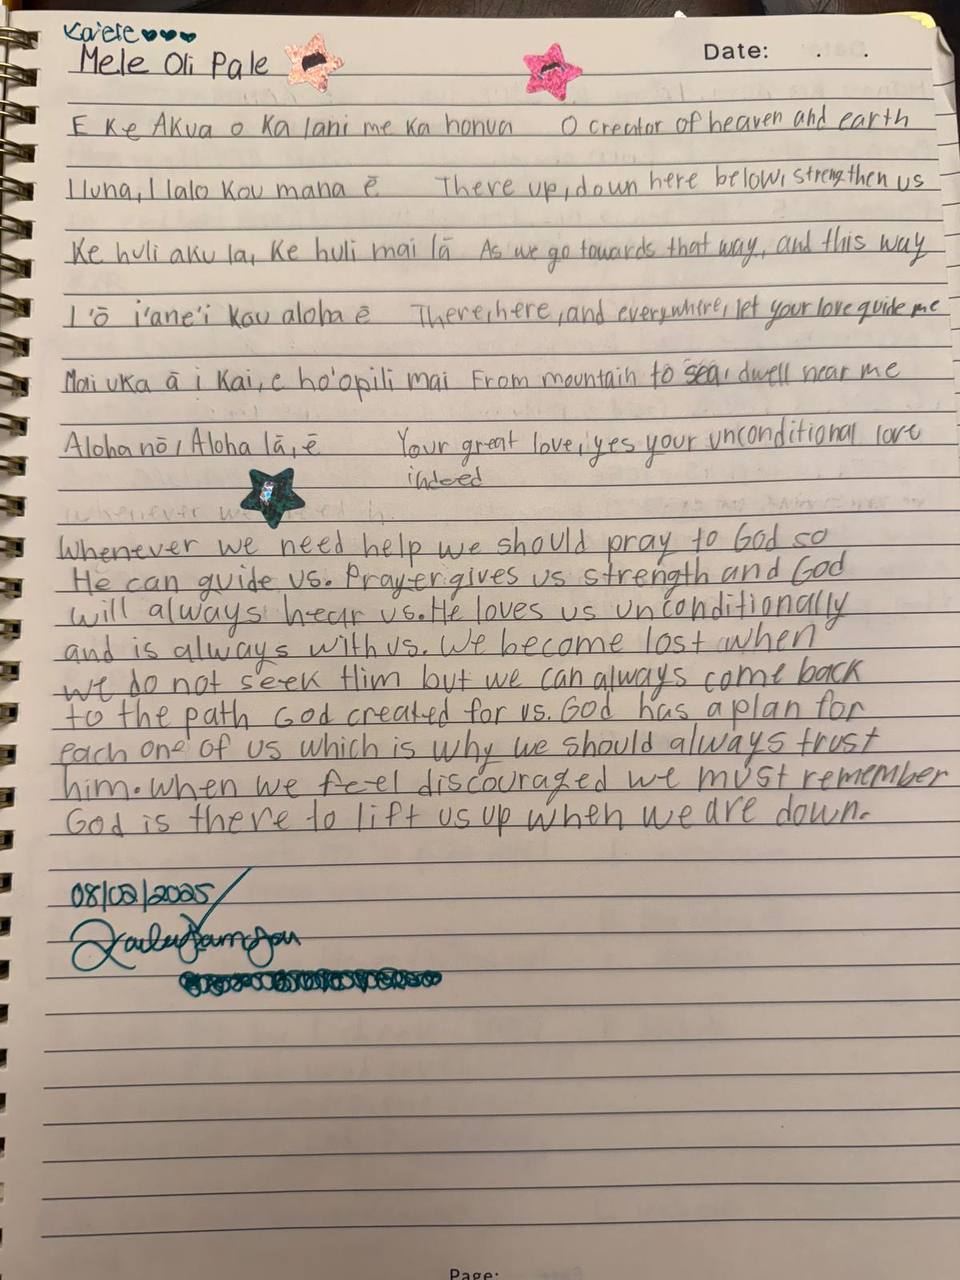 Kaiele
Mele Oli Pale
Date: . .
E Ke Akua o Ka lani me Ka honua O creator of heaven and earth
I luna, I lalo Kou mana ē There up, down here below, strengthen us
Ke huli aku la, Ke huli mai lā As we go towards that way, and this way
I 'ō i'ane'i Kou aloha ē There, here, and everywhere, let your love guide me
Mai uka ā i Kai, e ho'opili mai From mountain to sea, dwell near me
Aloha nō, Aloha lā, ē Your great love, yes your unconditional love
indeed
Whenever we need h
Whenever we need help we should pray to God so
He can guide us. Prayer gives us strength and God
will always hear us. He loves us unconditionally
and is always with us. We become lost when
we do not seek Him but we can always come back
to the path God created for us. God has a plan for
each one of us which is why we should always trust
him. when we feel discouraged we must remember
God is there to lift us up when we are down.
08/02/2025
Page: